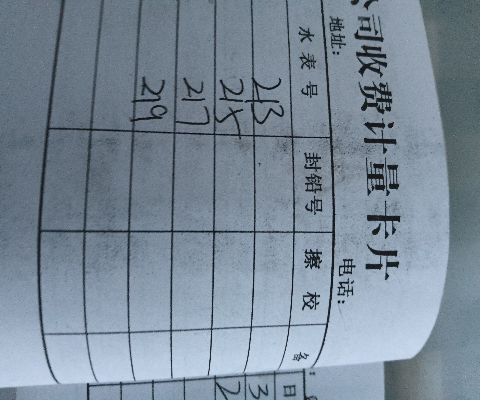 公司收费计量卡片
地址： 电话：
水表号 封铅号 擦校 备
213
215
217
219
日
3
2